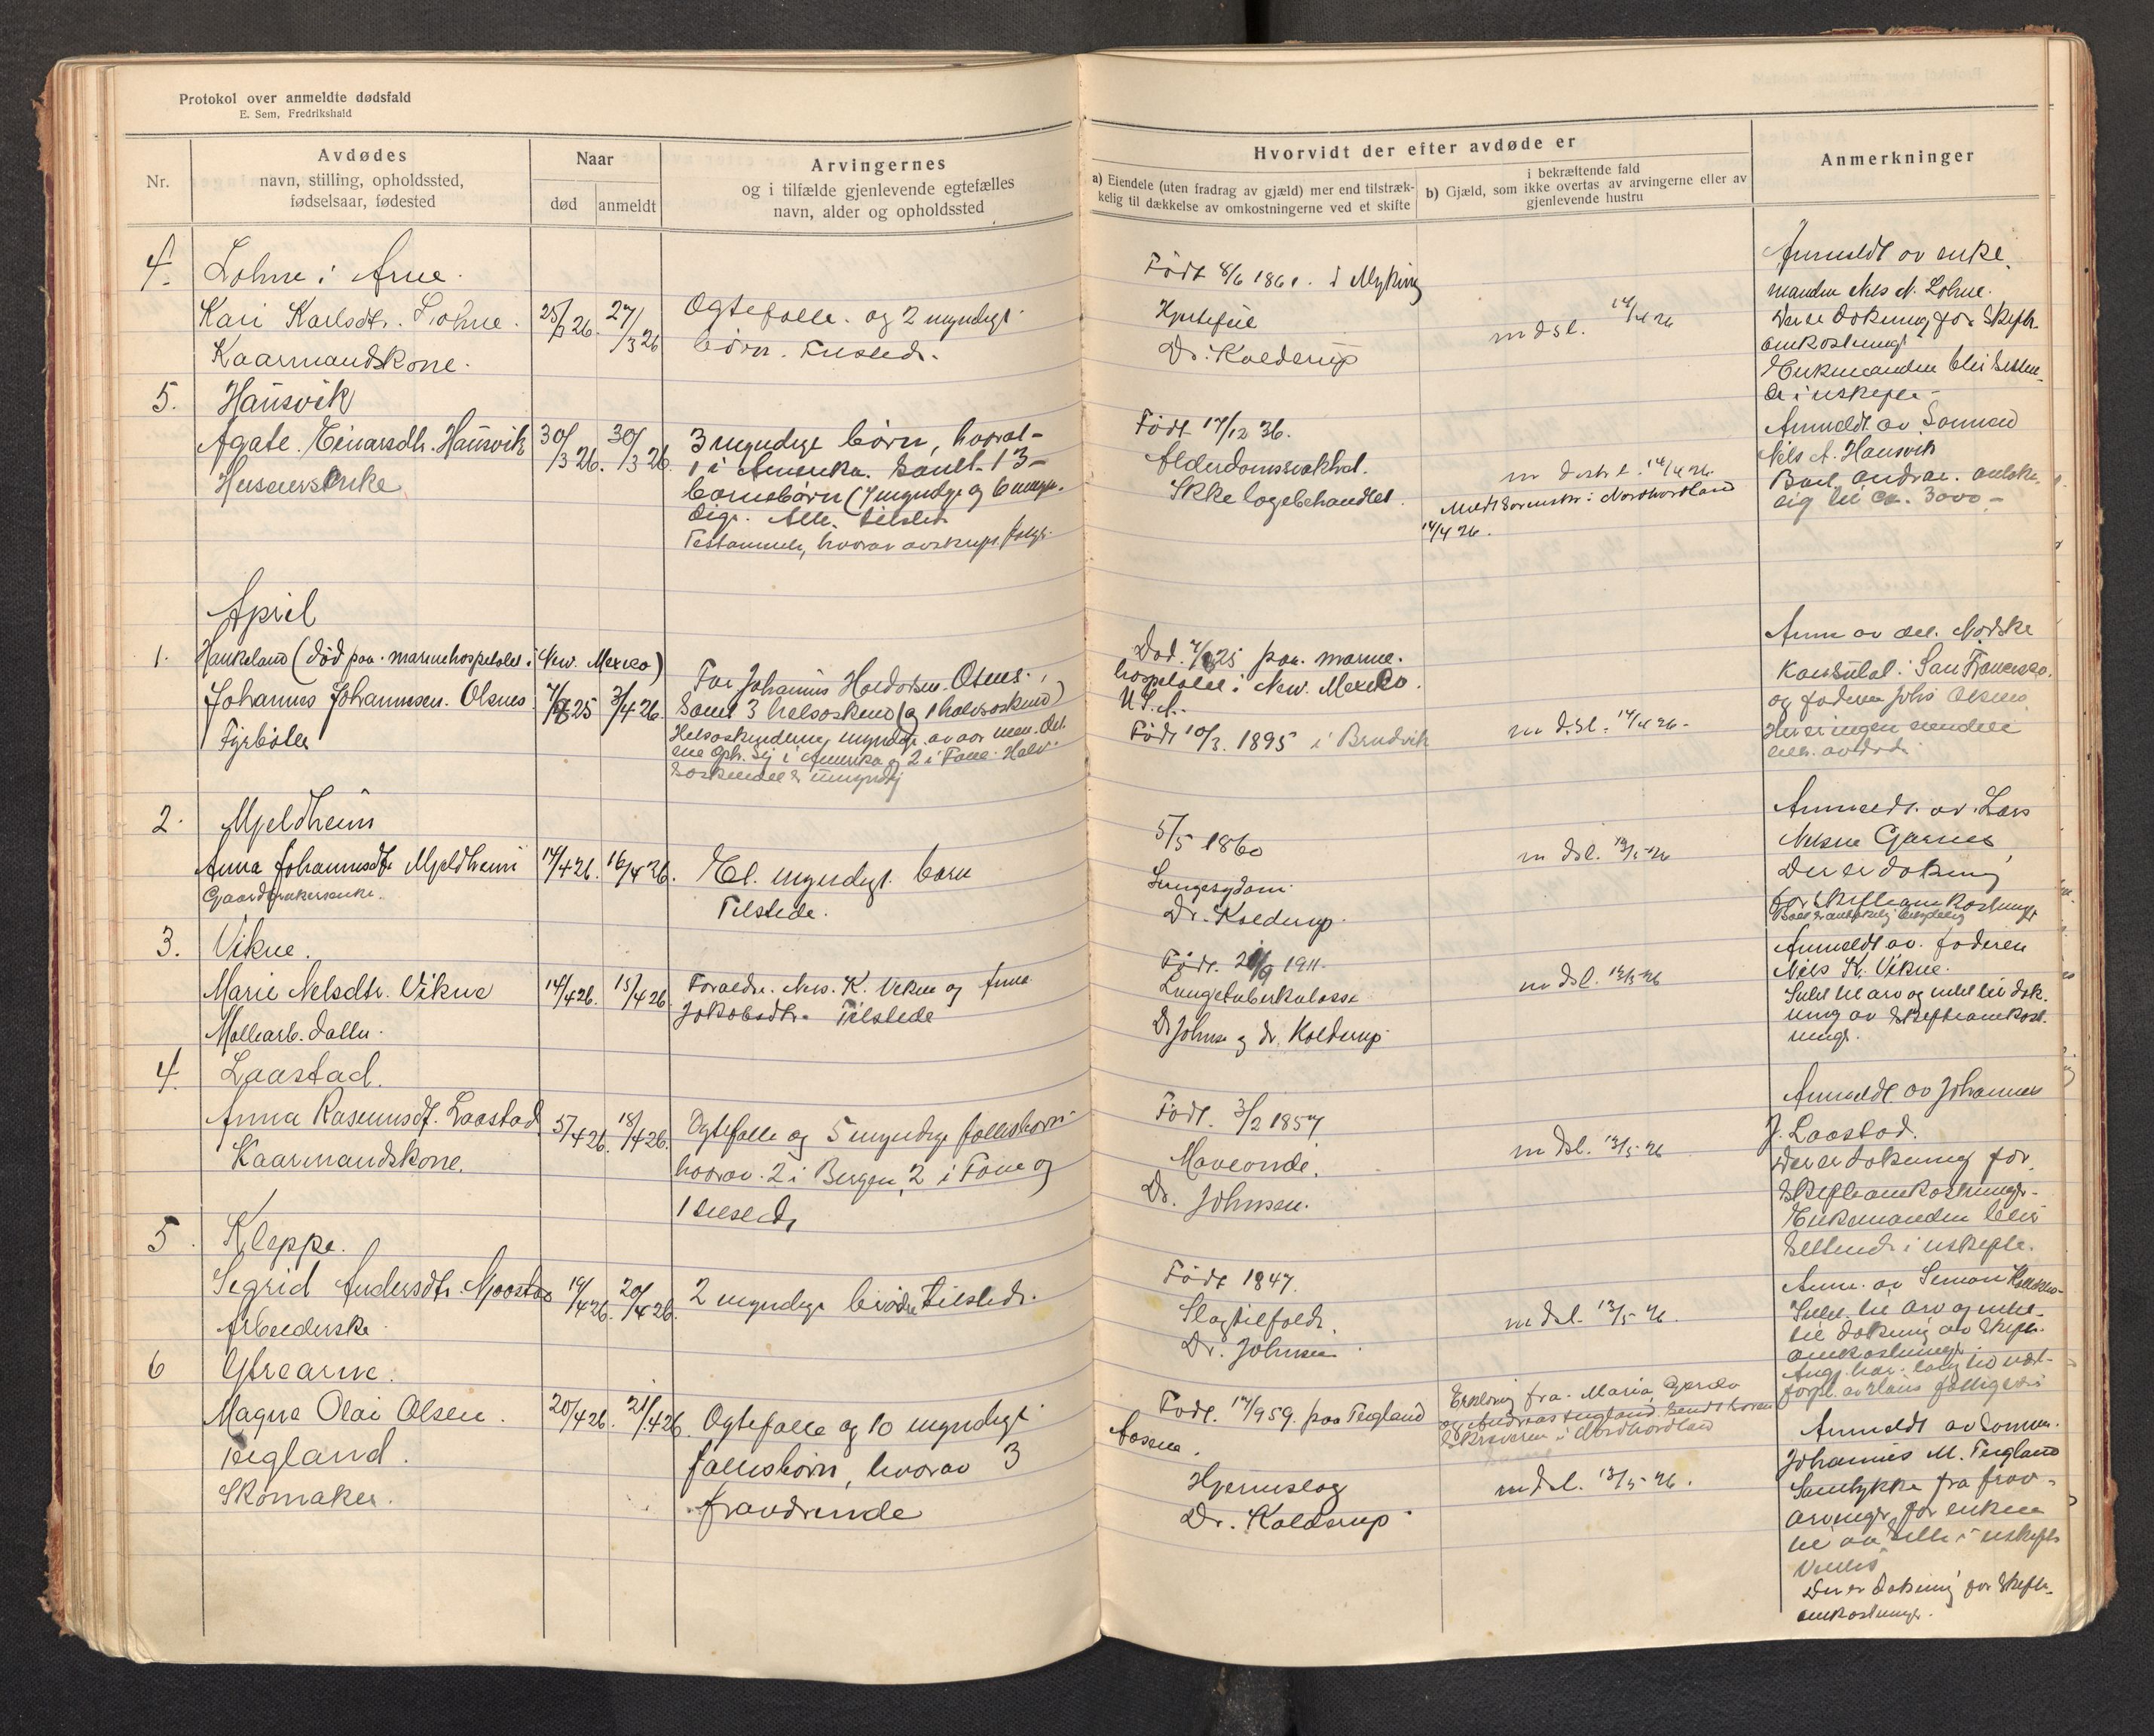 Protokol over anmeldte dødsfald
E. Sem, Fredrikshald
Nr.
Avdødes
navn, stilling, opholdssted,
fødselsaar, fødested
Naar
død
anmeldt
Arvingernes
og i tilfælde gjenlevende egtefælles
navn, alder og opholdssted
Hvorvidt der efter avdøde er
a) Eiendele (uten fradrag av gjæld) mer end tilstræk-
kelig til dækkelse av omkostningerne ved et skifte
i bekræftende fald
b) Gjæld, som ikke overtas av arvingerne eller av
gjenlevende hustru
Anmerkninger
4. Lohne i Arne.
Kari Karlsdtr. Lohne.
Kaarmandskone.
25/3 26. 27/3 26
Ogtefolle. og 2 myndige
børn. Tilstede.
Født 8/6 1861. i Myking
Hjertefeil
Dr. Kolderup
m dsl. 14/4 26
Anmeldt av enke.
manden Nils N. Lohne.
Der er dekning for Skifte-
omkostninger
Enkemanden blir sitten-
de i uskifte
5. Hausvik
Agate Einarsdtr. Hausvik
Husmersenke
30/3 26. 30/3 26.
3 myndige børn, hvorav
1 i Amerika. Samt 13
barnebørn (7 myndige og 6 umyn-
dige. Alle tilstede
Testamente, hvorav avskrift følger.
Født 17/12 36.
Alderdomssvakhet.
Ikke lægebehandlet.
14/4 26.
Anmeldt av Sønnen
Nils A. Hausvik
Boet andrar antake-
lig til ca. 3000 –
April
1. Haukeland (død paa marinehospitalet i New. Mexico)
Johannes Johannesen. Olsnes
Fyrbøter
25 3/4 26.
Far Johannes Haldorsen Olsnes
Samt 3 helsøskend (og 1 halvsøskend)
Helsøskendene myndige av aar men det
ene oph. sig i Amerika og 2 i Fane. Halv-
søskendet er umyndig
Død 25 paa marine-
hospitalet i New. Mexico.
U.S.A.
Født 10/3. 1895 i Bruvik
m dsl. 14/4 26.
Anm av det Norske
Konsulat i San Francisco.
og faderen Johs Olsnes
2. Mjeldheim
Anna Johannesdtr Mjeldheim
Gaardbrukerenke.
14/4 26. 16/4 26.
Et. myndigt barn
Tilstede.
5/5 1860
Lungesygdom
Dr. Kolderup.
m dsl. 12/5 26
Anmeldt. av. Lars
Nilsen Garnes
Der er dekning
for Skifteomkostninger
3. Vikne.
Marie Nilsdtr. Vikne
Møllearb. datter.
14/4 26. 15/4 26.
Foreldre. Nils. K. Vikne og Anna
Jakobsdtr. Tilstede
Født. 9 1911.
Lungetuberkulose
Dr Johnsen og dr. Kolderup
m dsl. 12/5 26
Anmeldt av. faderen
Nils K. Vikne.
Intet til arv og intet til dek-
ning av Skifteomkost-
ninger.
4. Laastad.
Anna Rasmusdt. Laastad
Kaarmandskone.
5/4 26. 18/4 26.
Ogtefolle og 5 myndige fellesbørn
hvorav. 2 i Bergen, 2 i Fane og
1 tilstede
Født. 3/2 1857
Maveonde.
Dr. Johnsen.
m dsl. 12/5 26
Anmeldt av Johannes
J. Laastad.
Der er dekning for
Skifteomkostninger.
Enkemanden blir
sittende i uskifte.
5. Kleppe.
Sigrid Andersdtr.
Arbeiderske
19/4 26. 20/4 26.
2 myndige brødre tilstede.
Født 1847.
Slagtilfelde.
Dr. Johnsen
m dsl. 12/5 26.
Anm. av Simon
Intet til arv og intet
til dekning av Skifte-
omkostninger
6 Ytrearne.
Magne Olai Olsen.
Teigland.
Skomaker.
20/4 26. 21/4 26.
Ogtefolle og 10 myndige
fellesbørn, hvorav 3
fraværende
Født. 959. paa Teigland
Aasene.
Hjerneslag
Dr. Kolderup.
Erklæring fra Maria
og Andreas Teigland sendt soren-
skriveren i Nordhordland
m dsl. 12/5 26.
Anmeldt av sønnen
Johannes M. Teigland
Samtykke fra frav.
arvinger for enken
til at sitte i uskiftet
Der er dekning for Skifte-
omkostninger.